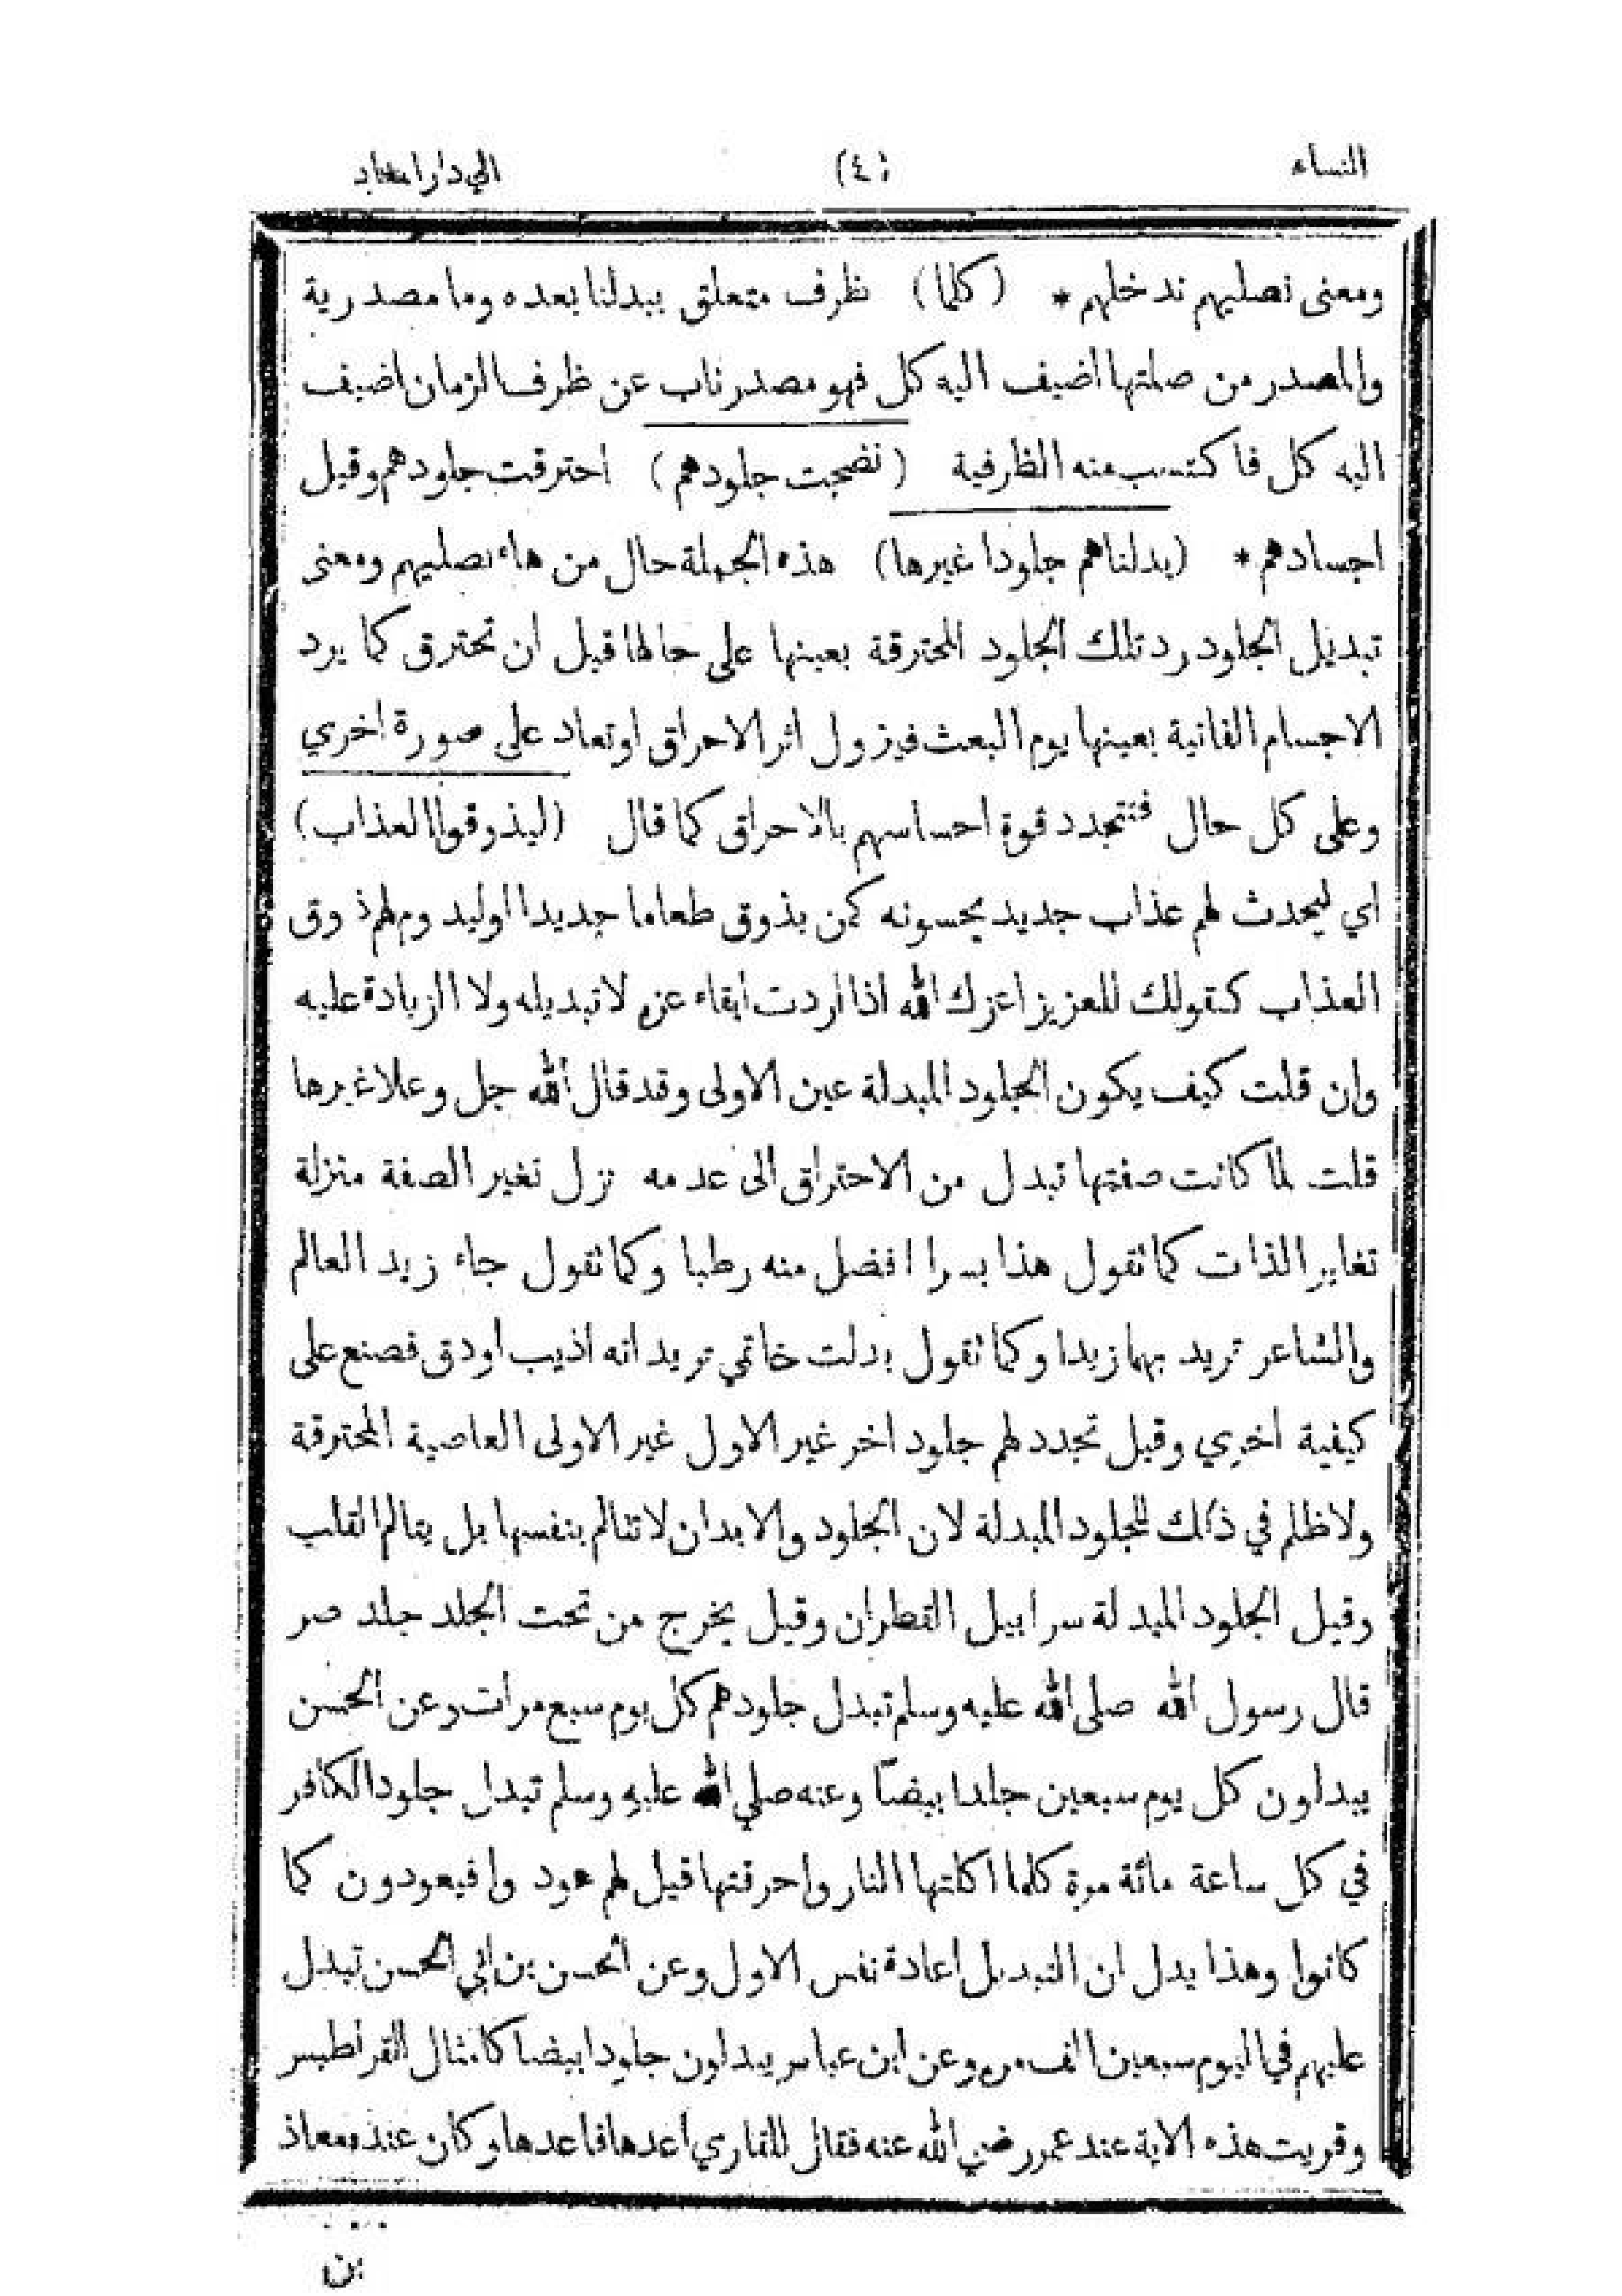 النساء (٤) الى دار المعاد
ومعنى نصليهم ندخلهم * (كلما) ظرف متعلق ببدلنا بعده وما مصدرية
والمصدر من صلتها اضيف اليه كل فهو مصدر ناب عن ظرف الزمان اضيف
اليه كل فاكتسب منه الظرفية (نضجت جلودهم) احترقت جلودهم وقيل
اجسادهم * (بدلناهم جلودا غيرها) هذه الجملة حال من هاء نصليهم ومعنى
تبديل الجلود رد تلك الجلود المحترقة بعينها على حالها قبل ان تحترق كما يرد
الاجسام الفانية بعينها يوم البعث فيزول اثر الاحراق او تعاد على صورة اخري
وعلى كل حال فتتجدد قوة احساسهم بالاحراق كما قال (ليذوقوا العذاب)
اي ليحدث لهم عذاب جديد يحسونه كمن يذوق طعاما جديدا او ليد وم لهم ذ وق
العذاب كقولك للعزيز اعزك الله اذا اردت ابقاء عزه لا تبديله ولا الزيادة عليه
وان قلت كيف يكون الجلود المبدلة عين الاولى وقد قال الله جل وعلا غيرها
قلت لما كانت صفتها تبدل من الاحتراق الى عدمه نزل تغير الصفة منزلة
تغاير الذات كما تقول هذا بسرا افضل منه رطبا وكما تقول جاء زيد العالم
والشاعر تريد بهما زيدا وكما تقول بدلت خاتمي تريد انه اذيب او دق فصنع على
كيفية اخري وقيل تجدد لهم جلود اخر غير الاول غير الاولى العاصية المحترقة
ولا ظلم في ذلك للجلود المبدلة لان الجلود والابدان لا تتالم بنفسها بل يتالم القلب
وقيل الجلود المبدلة سرابيل القطران وقيل يخرج من تحت الجلد جلد صر
قال رسول الله صلى الله عليه وسلم تبدل جلودهم كل يوم سبع مرات وعن الحسن
يبدلون كل يوم سبعين جلدا بيضا وعنه صلي الله عليه وسلم تبدل جلود الكافر
في كل ساعة مائة مرة كلما اكلتها النار واحرقتها قيل لهم عود وا فيعودون كما
كانوا وهذا يدل ان التبديل اعادة نفس الاول وعن الحسن بن ابي الحسن تبدل
عليهم في اليوم سبعين الف مره وعن ابن عباس يبدلون جلودا بيضا كامثال القراطيس
وقريت هذه الاية عند عمر رضي الله عنه فقال للقاري اعدها فاعدها وكان عنده معاذ
بن